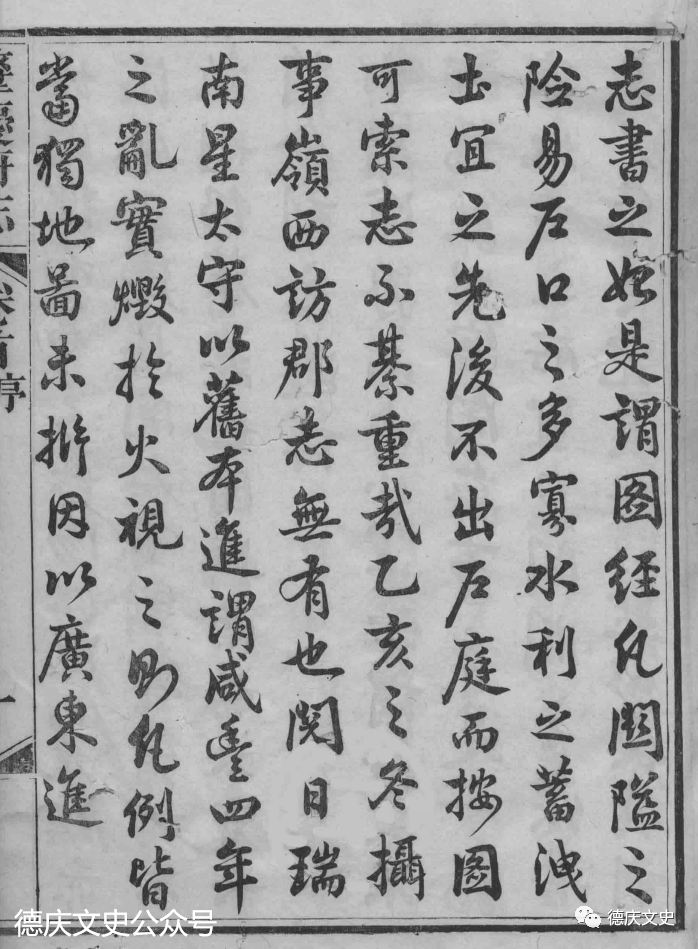 志書之始是謂圖經凡關隘之
險易戶口之多寡水利之蓄洩
土宜之先後不出戶庭而按圖
可索志不綦重哉乙亥之冬攝
事嶺西訪郡志無有也閱日瑞
南星太守以舊本進謂咸豐四年
之亂實燬於火視之則凡例皆
當獨地啚未因以廣東進
肇慶府志 卷首 序 一
德庆文史公众号
德庆文史